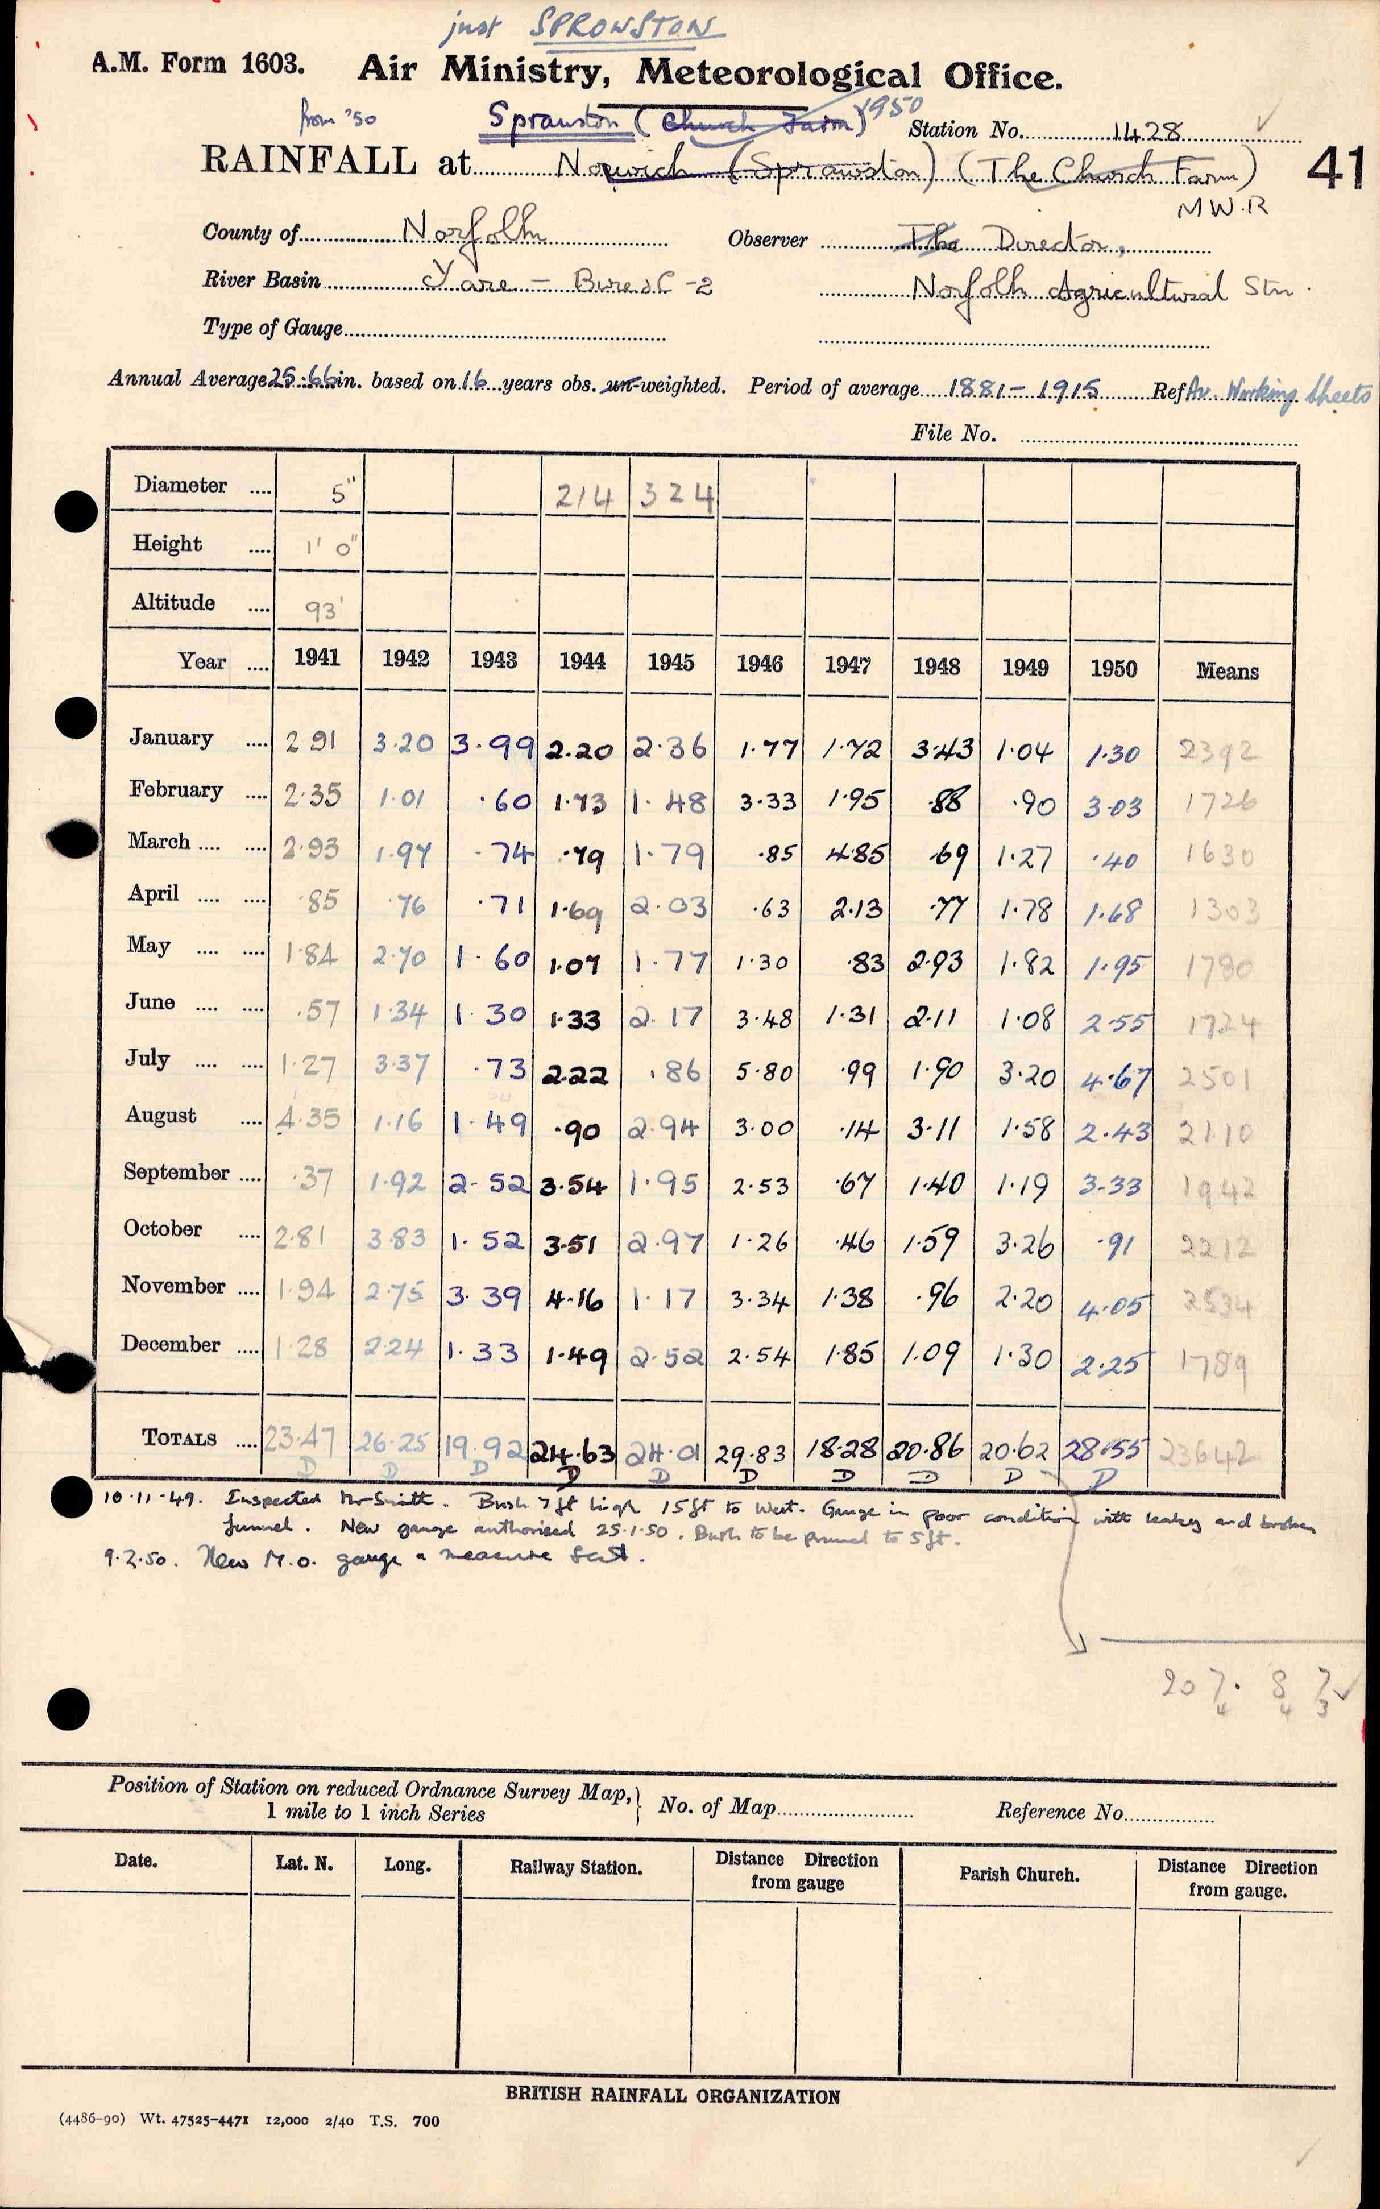 just SPROWSTON
A.M. Form 1603. Air Ministry, Meteorological Office.
from '50 Sprowston (Church Farm) 1950 Station No. 1428
RAINFALL at Norwich (Sprowston) (The Church Farm) 41
M.W.R
County of Norfolk Observer The Director,
River Basin Yare - Bure &c -2 Norfolk Agricultural Stn.
Type of Gauge
Annual Average 25.66 in. based on 16 years obs. un-weighted. Period of average 1881-1915 Ref Av. Working Sheets
File No.
Diameter .... 5" 214 324
Height .... 1' 0"
Altitude .... 93'
Year .... 1941 1942 1943 1944 1945 1946 1947 1948 1949 1950 Means
January .... 2.91 3.20 3.99 2.20 2.36 1.77 1.72 3.43 1.04 1.30 2392
February .... 2.35 1.01 .60 1.73 1.48 3.33 1.95 .88 .90 3.03 1726
March .... .... 2.93 1.97 .74 .79 1.79 .85 4.85 .69 1.27 .40 1630
April .... .... .85 .76 .71 1.69 2.03 .63 2.13 .77 1.78 1.68 1303
May .... .... 1.84 2.70 1.60 1.07 1.77 1.30 .83 2.93 1.82 1.95 1780
June .... .... .57 1.34 1.30 1.33 2.17 3.48 1.31 2.11 1.08 2.55 1724
July .... .... 1.27 3.37 .73 2.22 .86 5.80 .99 1.90 3.20 4.67 2501
August .... 4.35 1.16 1.49 .90 2.94 3.00 .14 3.11 1.58 2.43 2110
September .... .37 1.92 2.52 3.54 1.95 2.53 .67 1.40 1.19 3.33 1942
October .... 2.81 3.83 1.52 3.51 2.97 1.26 .46 1.59 3.26 .91 2212
November .... 1.94 2.75 3.39 4.16 1.17 3.34 1.38 .96 2.20 4.05 2534
December .... 1.28 2.24 1.33 1.49 2.52 2.54 1.85 1.09 1.30 2.25 1789
TOTALS .... 23.47 26.25 19.92 24.63 24.01 29.83 18.28 20.86 20.62 28.55 23642
D D D D D D D D D D
10.11.49. Inspected Mr Smith. Bush 7 ft high 15 ft to West. Gauge in poor condition with leaky and broken
funnel. New gauge authorised 25.1.50. Bush to be pruned to 5 ft.
9.2.50. New M.O. gauge & measure sent.
Position of Station on reduced Ordnance Survey Map, 1 mile to 1 inch Series } No. of Map Reference No.
Date. Lat. N. Long. Railway Station. Distance Direction from gauge Parish Church. Distance Direction from gauge.
BRITISH RAINFALL ORGANIZATION
(4486-90) Wt. 47525-4471 12,000 2/40 T.S. 700